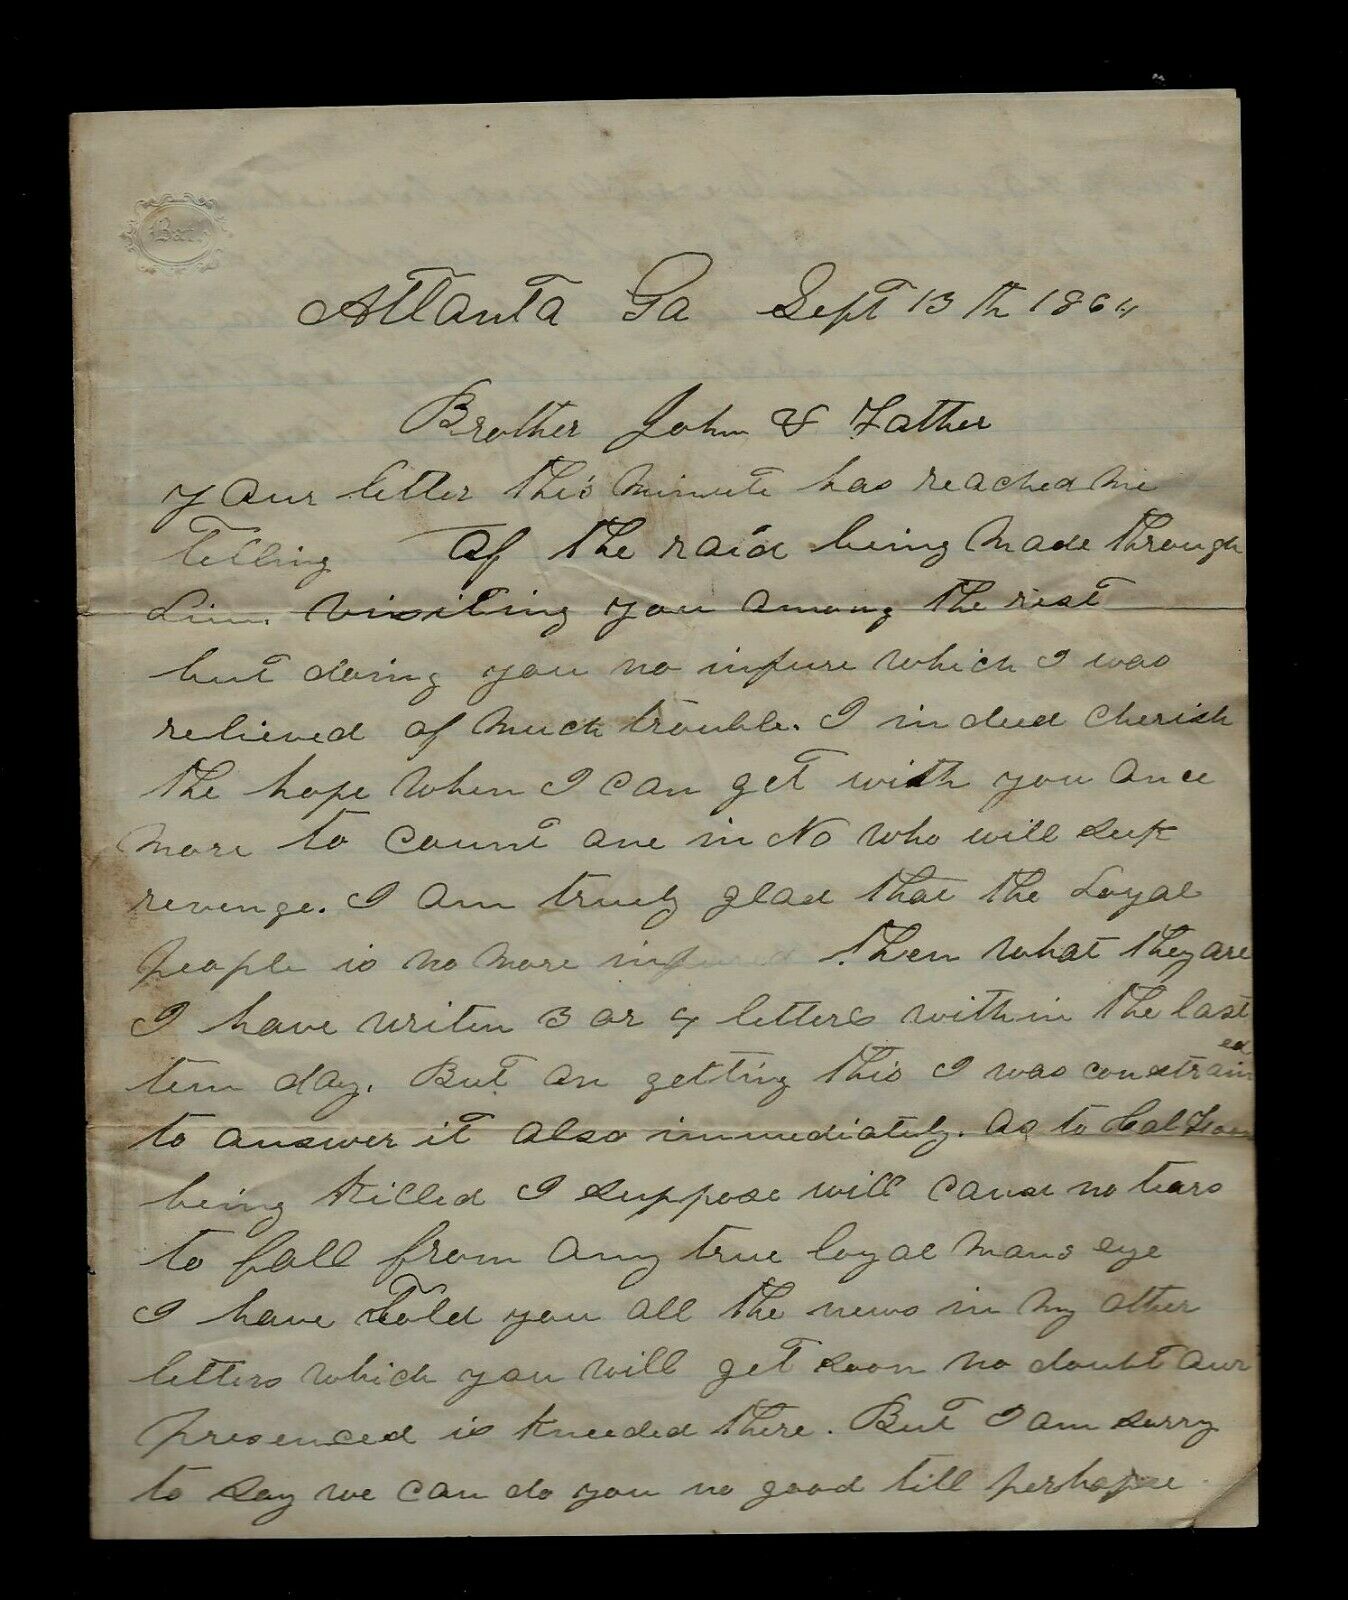 Bath
Atlanta Ga Sept 13th 1864
Brother John & Father
your letter this minute has reached me
telling of the raid being made through
Linn visiting you among the rest
but doing you no injure which I was
relieved of much trouble. I indeed cherish
the hope when I can get with you once
more to count one in No who will seek
revenge. I am truely glad that the Loyal
people is no more injured then what they are
I have writen 3 or 4 letters within the last
tenn day. But on getting this I was constrained
to answer it also immediately. As to Cal
being killed I suppose will cause no tears
to fall from any true loyal mans eye
I have told you all the news in my other
letters which you will get soon no doubt our
presenced is kneeded there. But I am sorry
to say we can do you no good till perhapse